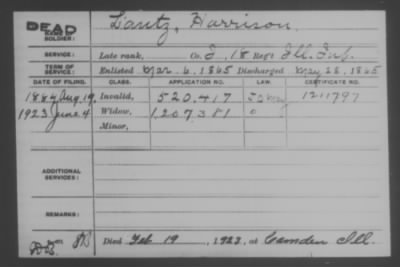 DEAD
NAME OF SOLDIER: Lantz, Harrison.
SERVICE: Late rank, Co. I, 18 Reg't Ill. Inf.
TERM OF SERVICE: Enlisted Mar. 6, 1865 Discharged May 28, 1865
DATE OF FILING. CLASS. APPLICATION NO. CERTIFICATE NO.
1884 Aug. 19. Invalid, 520.417 1211797
1923 June. 4 Widow, 1,207,381 0
Minor,
ADDITIONAL SERVICES:
REMARKS:
Died Feb 19, 1923, at Camden Ill.